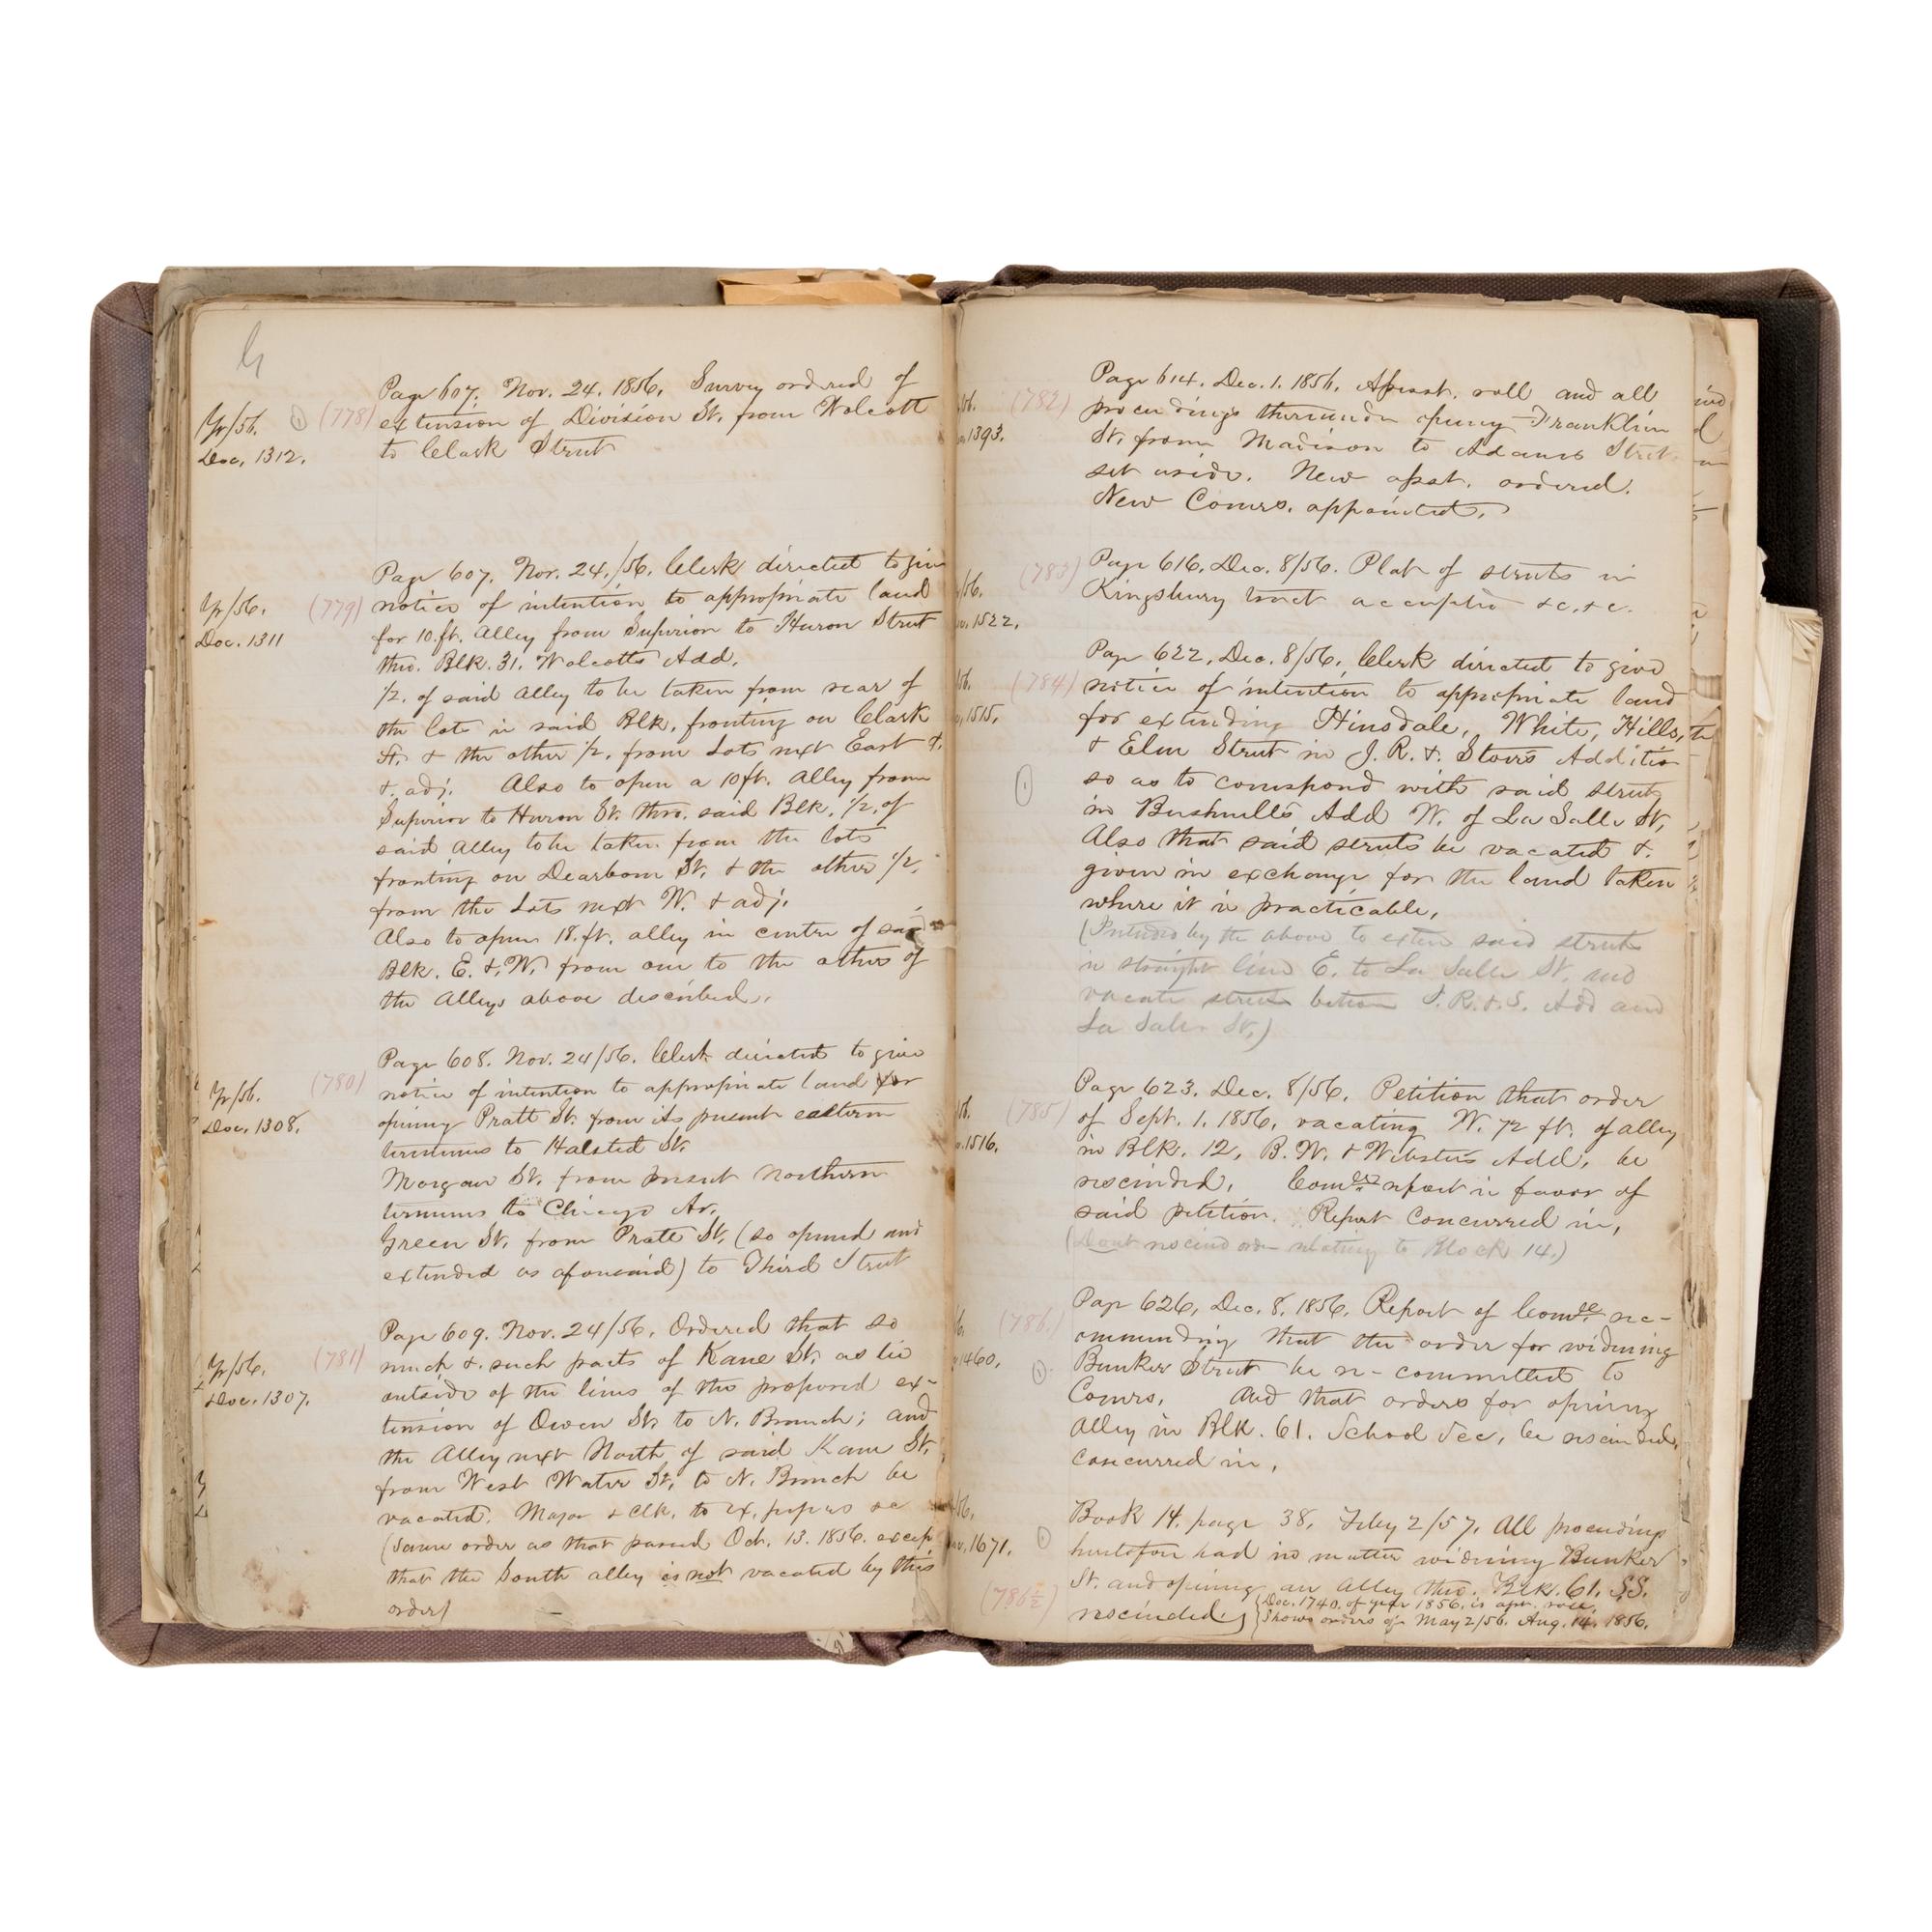 Yr/56.
Doc. 1312.
(778)
Page 607. Nov. 24. 1856. Survey ordered of
extension of Division St. from Wolcott
to Clark Street
Yr/56.
Doc. 1311
(779)
Page 607. Nov. 24./56. Clerk directed to give
notice of intention to appropriate land
for 10.ft. Alley from Superior to Huron Street
thro. Blk. 31. Wolcotts Add.
1/2. of said Alley to be taken from rear of
the lots in said Blk. fronting on Clark
St. & the other 1/2. from Lots next East &.
&. adj. Also to open a 10ft. Alley from
Superior to Huron St. thro. said Blk. 1/2. of
said Alley to be taken from the lots
fronting on Dearborn St. & the other 1/2.
from the Lots next W. & adj.
Also to open 18.ft. alley in centre of said
Blk. E. & W. from one to the other of
the Alleys above described.
Yr/56.
Doc. 1308.
(780)
Page 608. Nov. 24/56. Clerk directed to give
notice of intention to appropriate land for
opening Pratt St. from its present eastern
terminus to Halsted St.
Morgan St. from present northern
terminus to Chicago Av.
Green St. from Pratt St. (so opened and
extended as aforesaid) to Third Street
Yr/56.
Doc. 1307.
(781)
Page 609. Nov. 24/56. Ordered that so
much & such parts of Kane St. as lie
outside of the lines of the proposed ex-
tension of Owen St. to N. Branch; and
the Alley next North of said Kane St.
from West Water St. to N. Branch be
vacated. Mayor & Clk. to ex. papers &c
(Same order as that passed Oct. 13. 1856. except
that the South alley is not vacated by this
order)
/56.
1393.
(782)
Page 614. Dec. 1. 1856. Assesst. roll and all
proceedings thereunder opening Franklin
St. from Madison to Adams Street
set aside. New asst. ordered.
New Comrs. appointed.
/56.
1522.
(783)
Page 616. Dec. 8/56. Plat of streets in
Kingsbury tract accepted &c. &c.
56.
1515.
(784)
Page 622. Dec. 8/56. Clerk directed to give
notice of intention to appropriate land
for extending Hinsdale, White, Hills,
& Elm Street in J. R. &. Stows Addition
so as to correspond with said streets
in Bushnell's Add W. of La Salle St.
Also that said streets be vacated &.
given in exchange for the land taken
where it is practicable.
(Intended by the above to extend said streets
in straight line E. to La Salle St. and
vacate streets between J. R. & S. Add and
La Salle St.)
56.
1516.
(785)
Page 623. Dec. 8/56. Petition that order
of Sept. 1. 1856, vacating W. 72 ft. of alley
in Blk. 12, B. W. & Webster's Add, be
rescinded. Comee report in favor of
said petition. Report concurred in.
(Dont rescind order relating to Block 14.)
1460.
(786.)
Page 626, Dec. 8. 1856. Report of Comee re-
commending that the order for widening
Bunker Street be re-committed to
Comrs. And that orders for opening
Alley in Blk. 61. School Sec. be rescinded.
Concurred in.
/56.
1671.
(786 1/2)
Book 14. page 38. Feby 2/57. All proceedings
heretofore had in matter widening Bunker
St. and opening an Alley thro. Blk. 61. S.S.
rescinded.
Doc. 1740. of year 1856. is asst. roll.
Shows orders of May 2/56. Aug. 14. 1856.